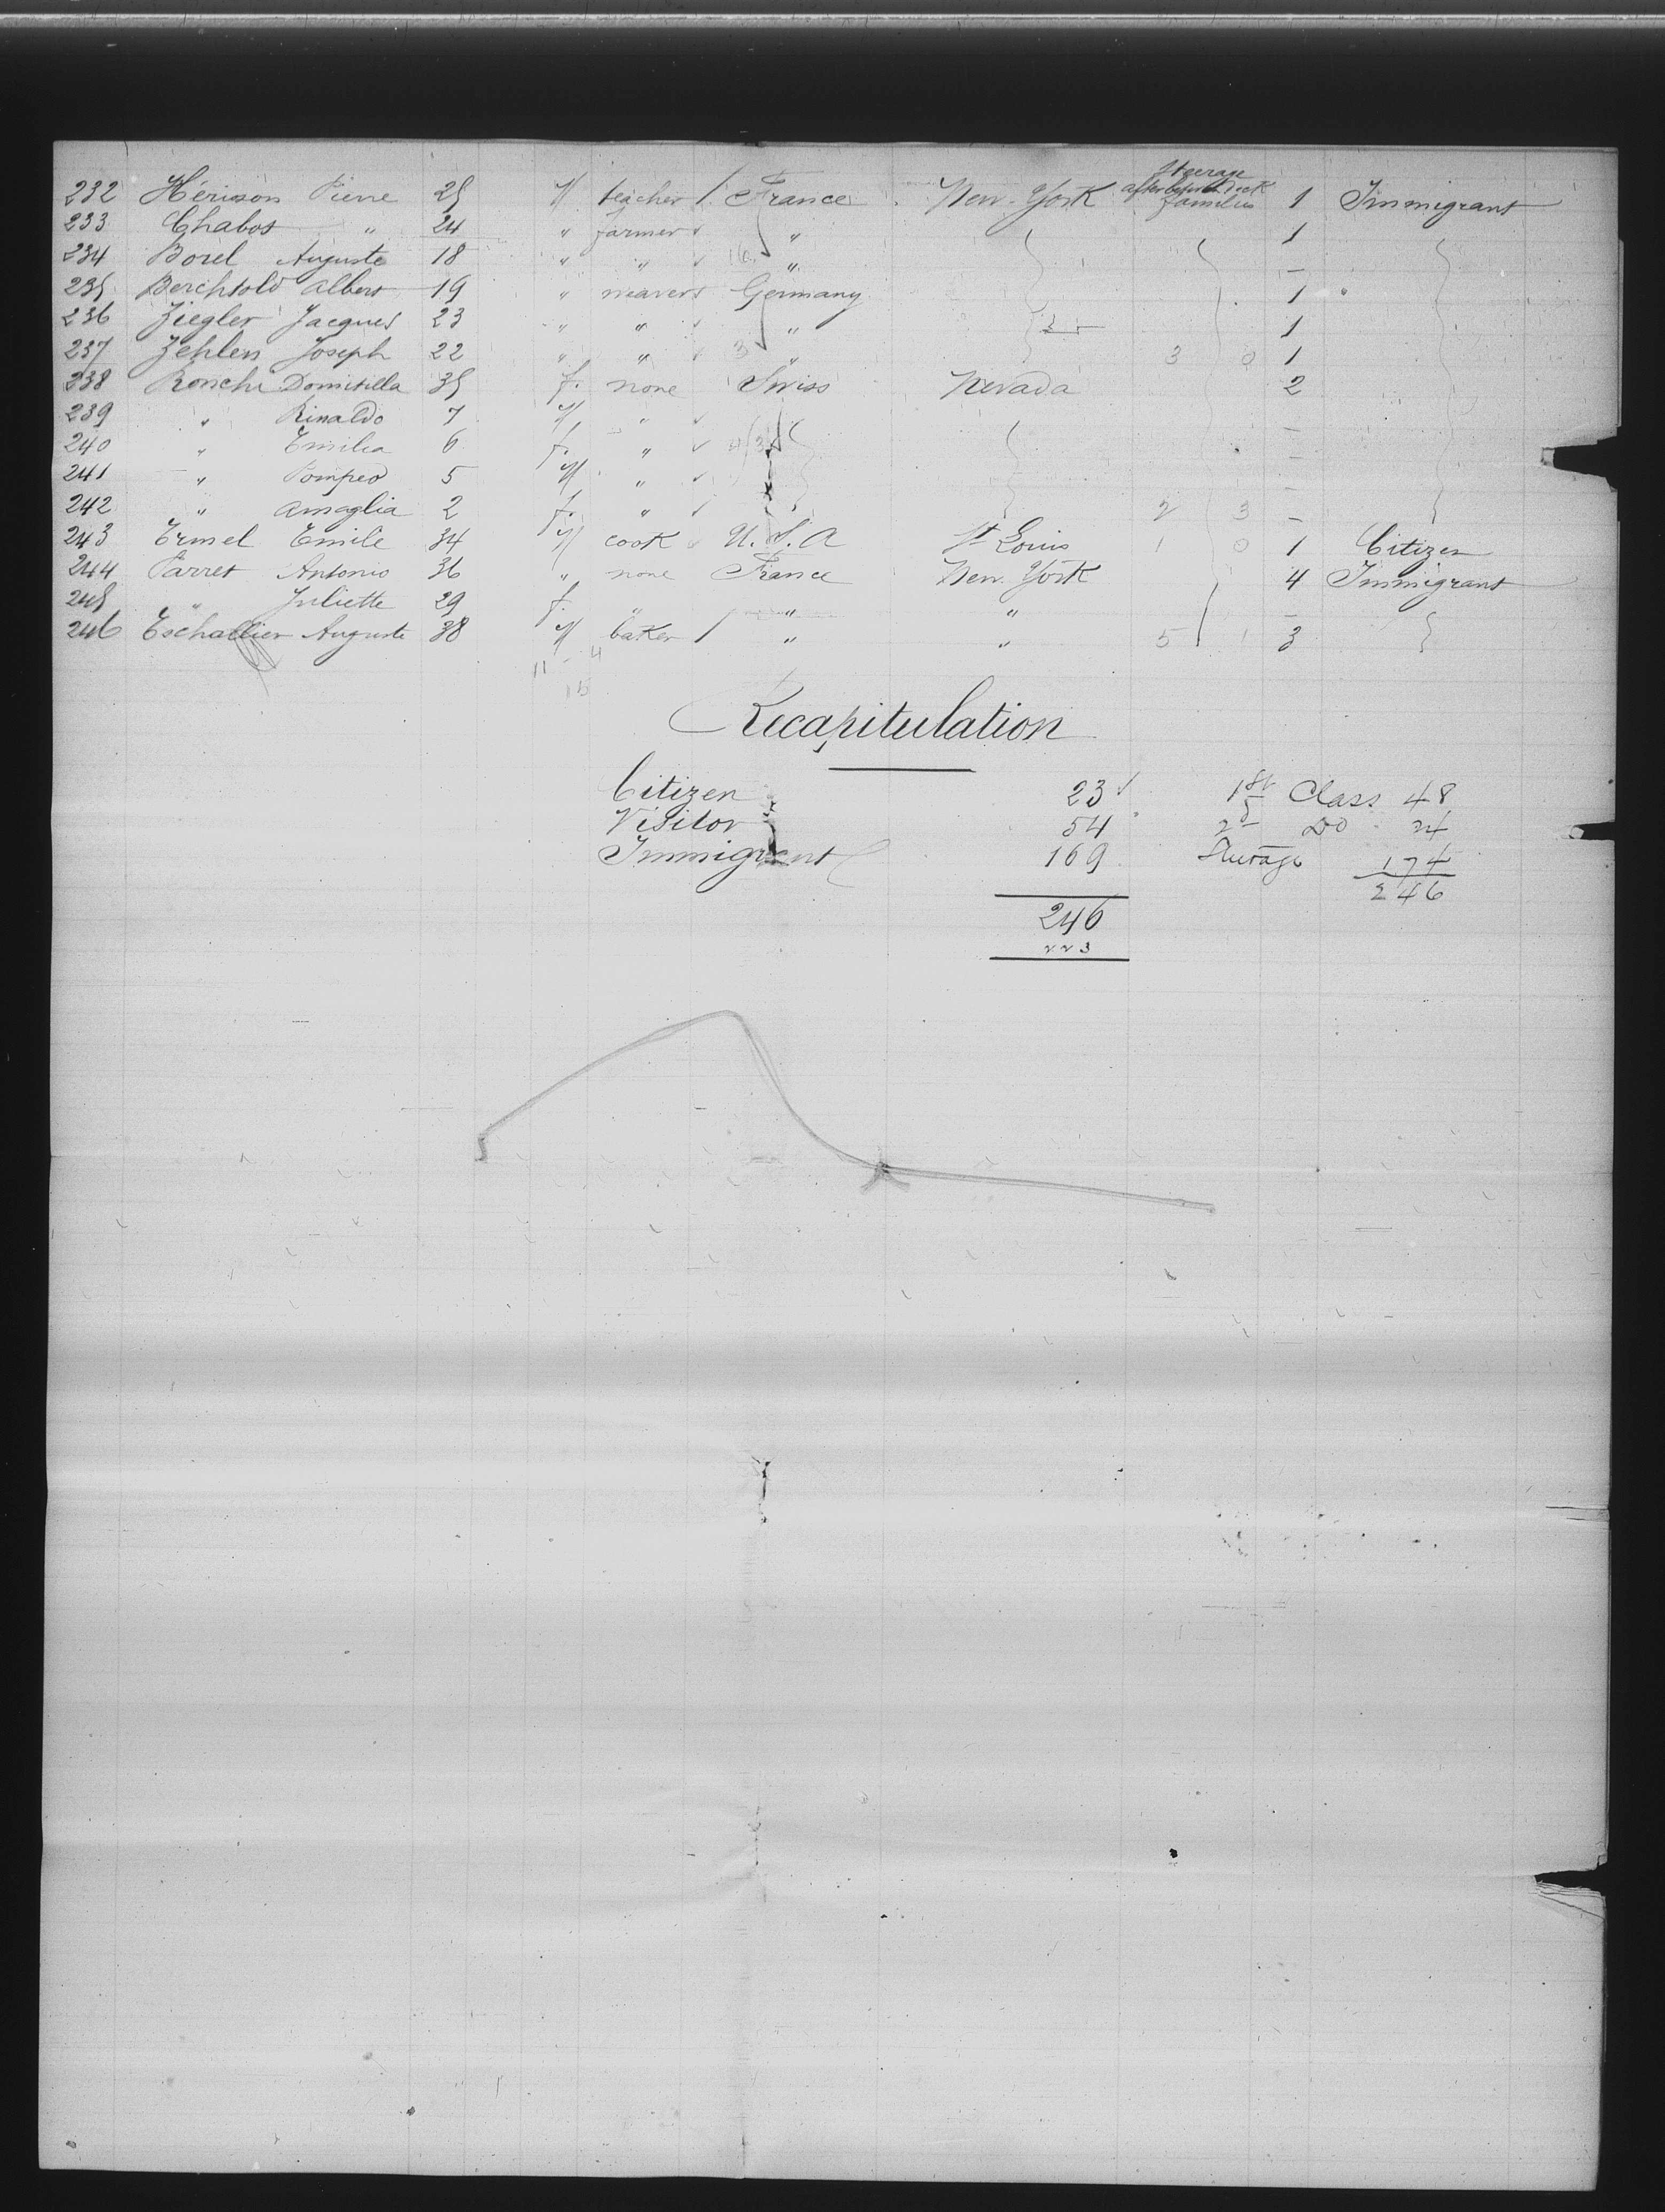 Steerage
232 Hérisson Pierre 25 M teacher / France New-York after between Deck families 1 Immigrant
233 Chabot " 24 " farmer " 1
234 Borel Auguste 18 " " 16 " —
235 Berchtold Albert 19 " weaver Germany 1
236 Ziegler Jacques 23 " " " 1
237 Zehlen Joseph 22 " " 3 " 3 0 1
238 Ronchi Domitilla 35 f. none Swiss Nevada 2
239 " Rinaldo 7 M " —
240 " Emilia 6 f. " 4/3 —
241 " Pompeo 5 M " —
242 " Amaglia 2 f. " 2 3 —
243 Ermel Emile 34 M cook U.S.A St Louis 1 0 1 Citizen
244 Parret Antonio 36 " none France New-York 4 Immigrant
245 " Juliette 29 f. " " " —
246 Eschallier Auguste 38 M baker / " " 5 1 3
11 - 4
15
Recapitulation
Citizen 23 1st Class 48
Visitor 54 2d Do 24
Immigrant 169 Steerage 174
246
246
223